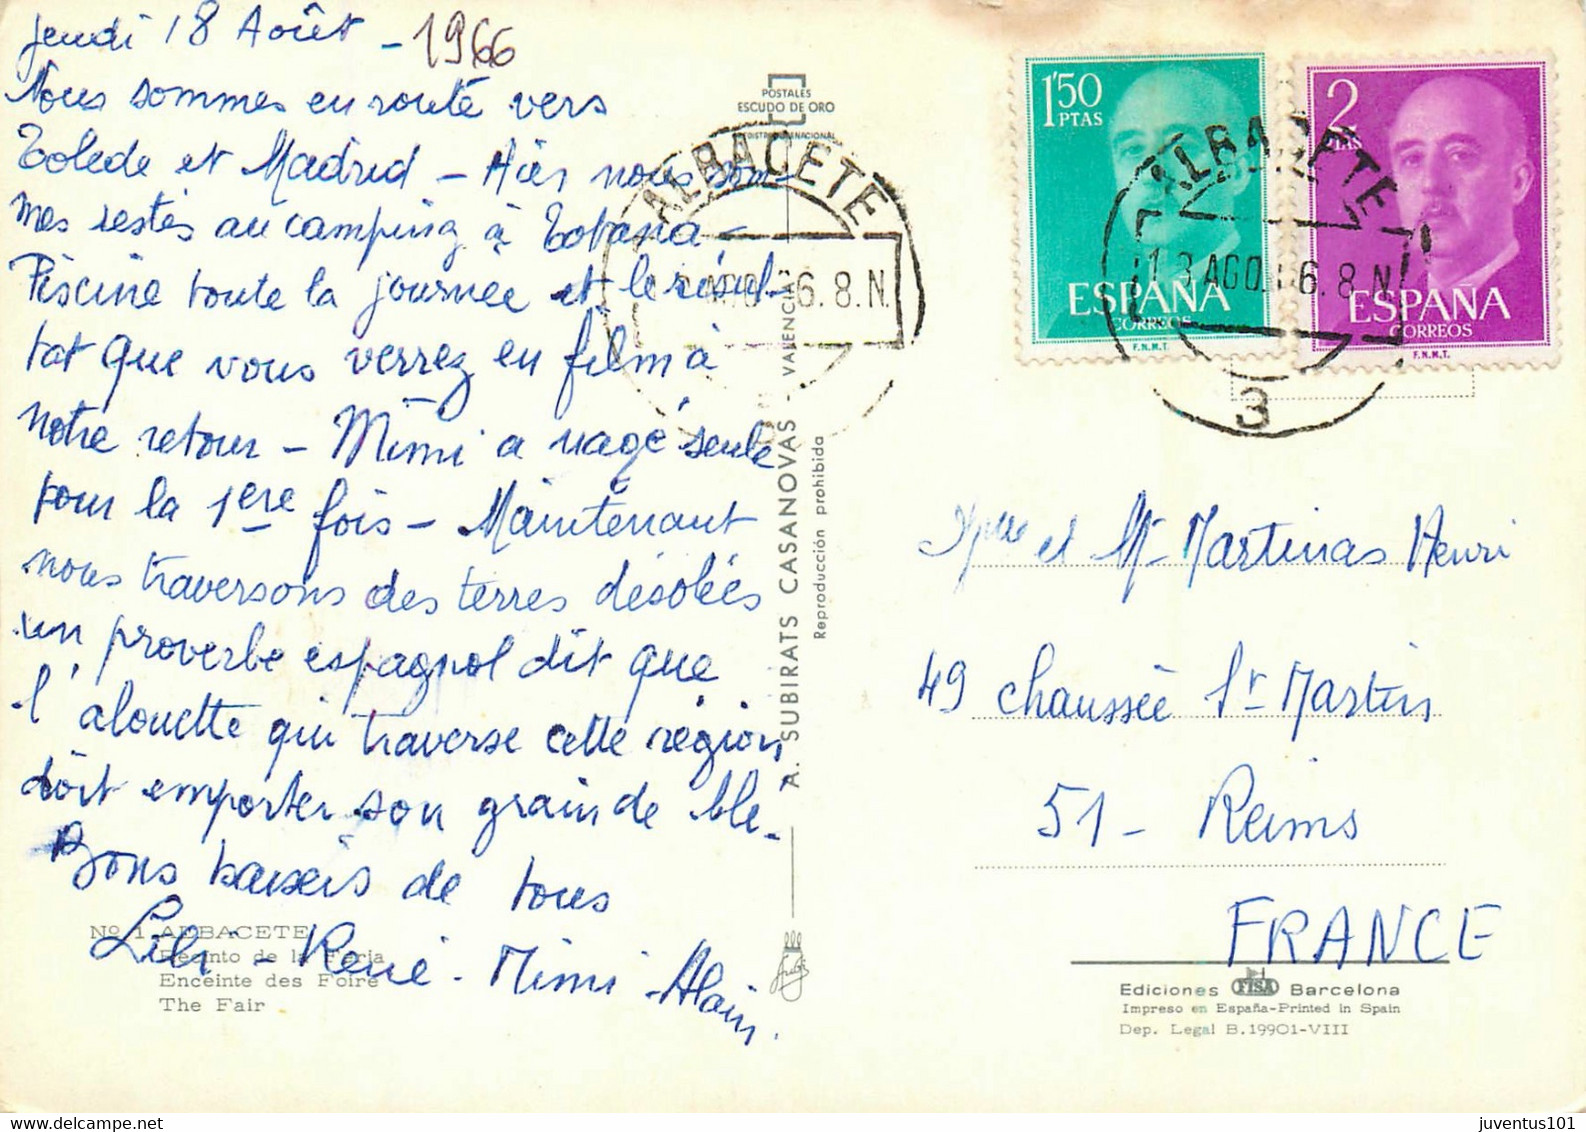 Jeudi 18 Août - 1966
Nous sommes en route vers
Tolede et Madrid - Hier nous som-
mes restés au camping à Totana -
Piscine toute la journée et le résul-
tat que vous verrez en film à
notre retour - Mimi a nagé seule
pour la 1ere fois - Maintenant
nous traversons des terres désolées
un proverbe espagnol dit que
l'alouette qui traverse cette région
doit emporter son grain de blé -
Bons baisers de tous
Lili - René - Mimi - Alain.
Nº 1 ALBACETE
Recinto de la Feria
Enceinte des Foire
The Fair
POSTALES
ESCUDO DE ORO
A. SUBIRATS CASANOVAS - VALENCIA
Reproducción prohibida
ALBACETE
6.8.N.
1'50
PTAS
ESPAÑA
CORREOS
F.N.M.T.
2
PTAS
ESPAÑA
CORREOS
F.N.M.T.
ALBACETE
AGO. 6.8.N
3
Mme et Mr Martinas Henri
49 chaussée St Martin
51 - Reims
FRANCE
Ediciones FISA Barcelona
Impreso en España-Printed in Spain
Dep. Legal B.19901-VIII
juventus101